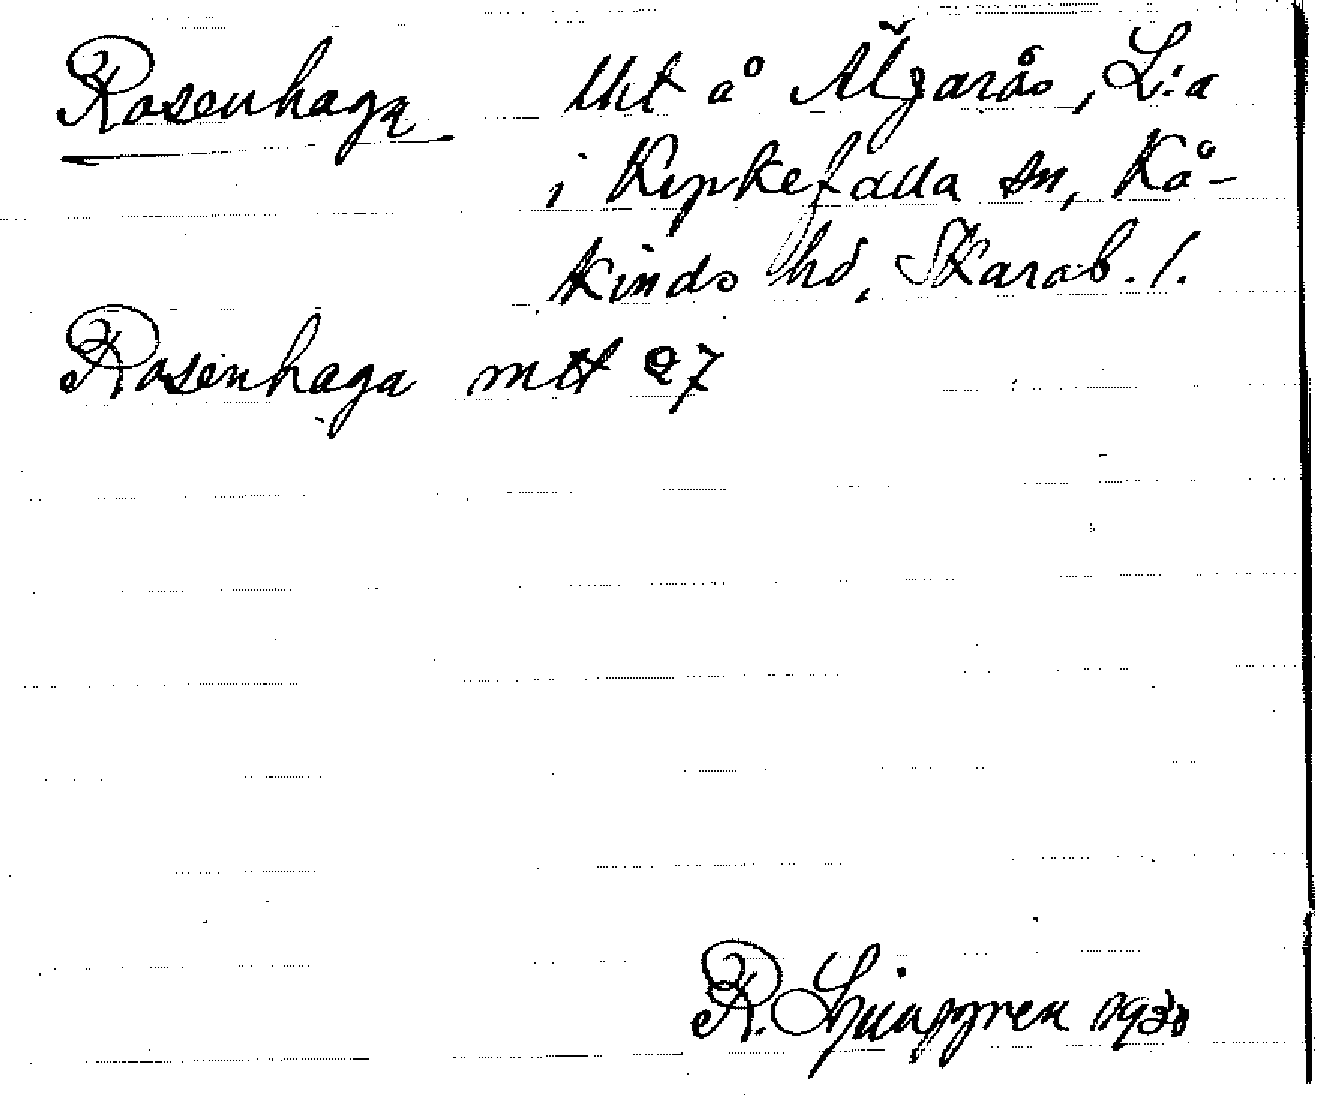 Rosenhaga Uht å Älgarås, L:a
i Kyrkefalla sn, Kå-
kinds hd, Skarab. l.
Rosenhaga mtt 97
R. Ljunggren 1930